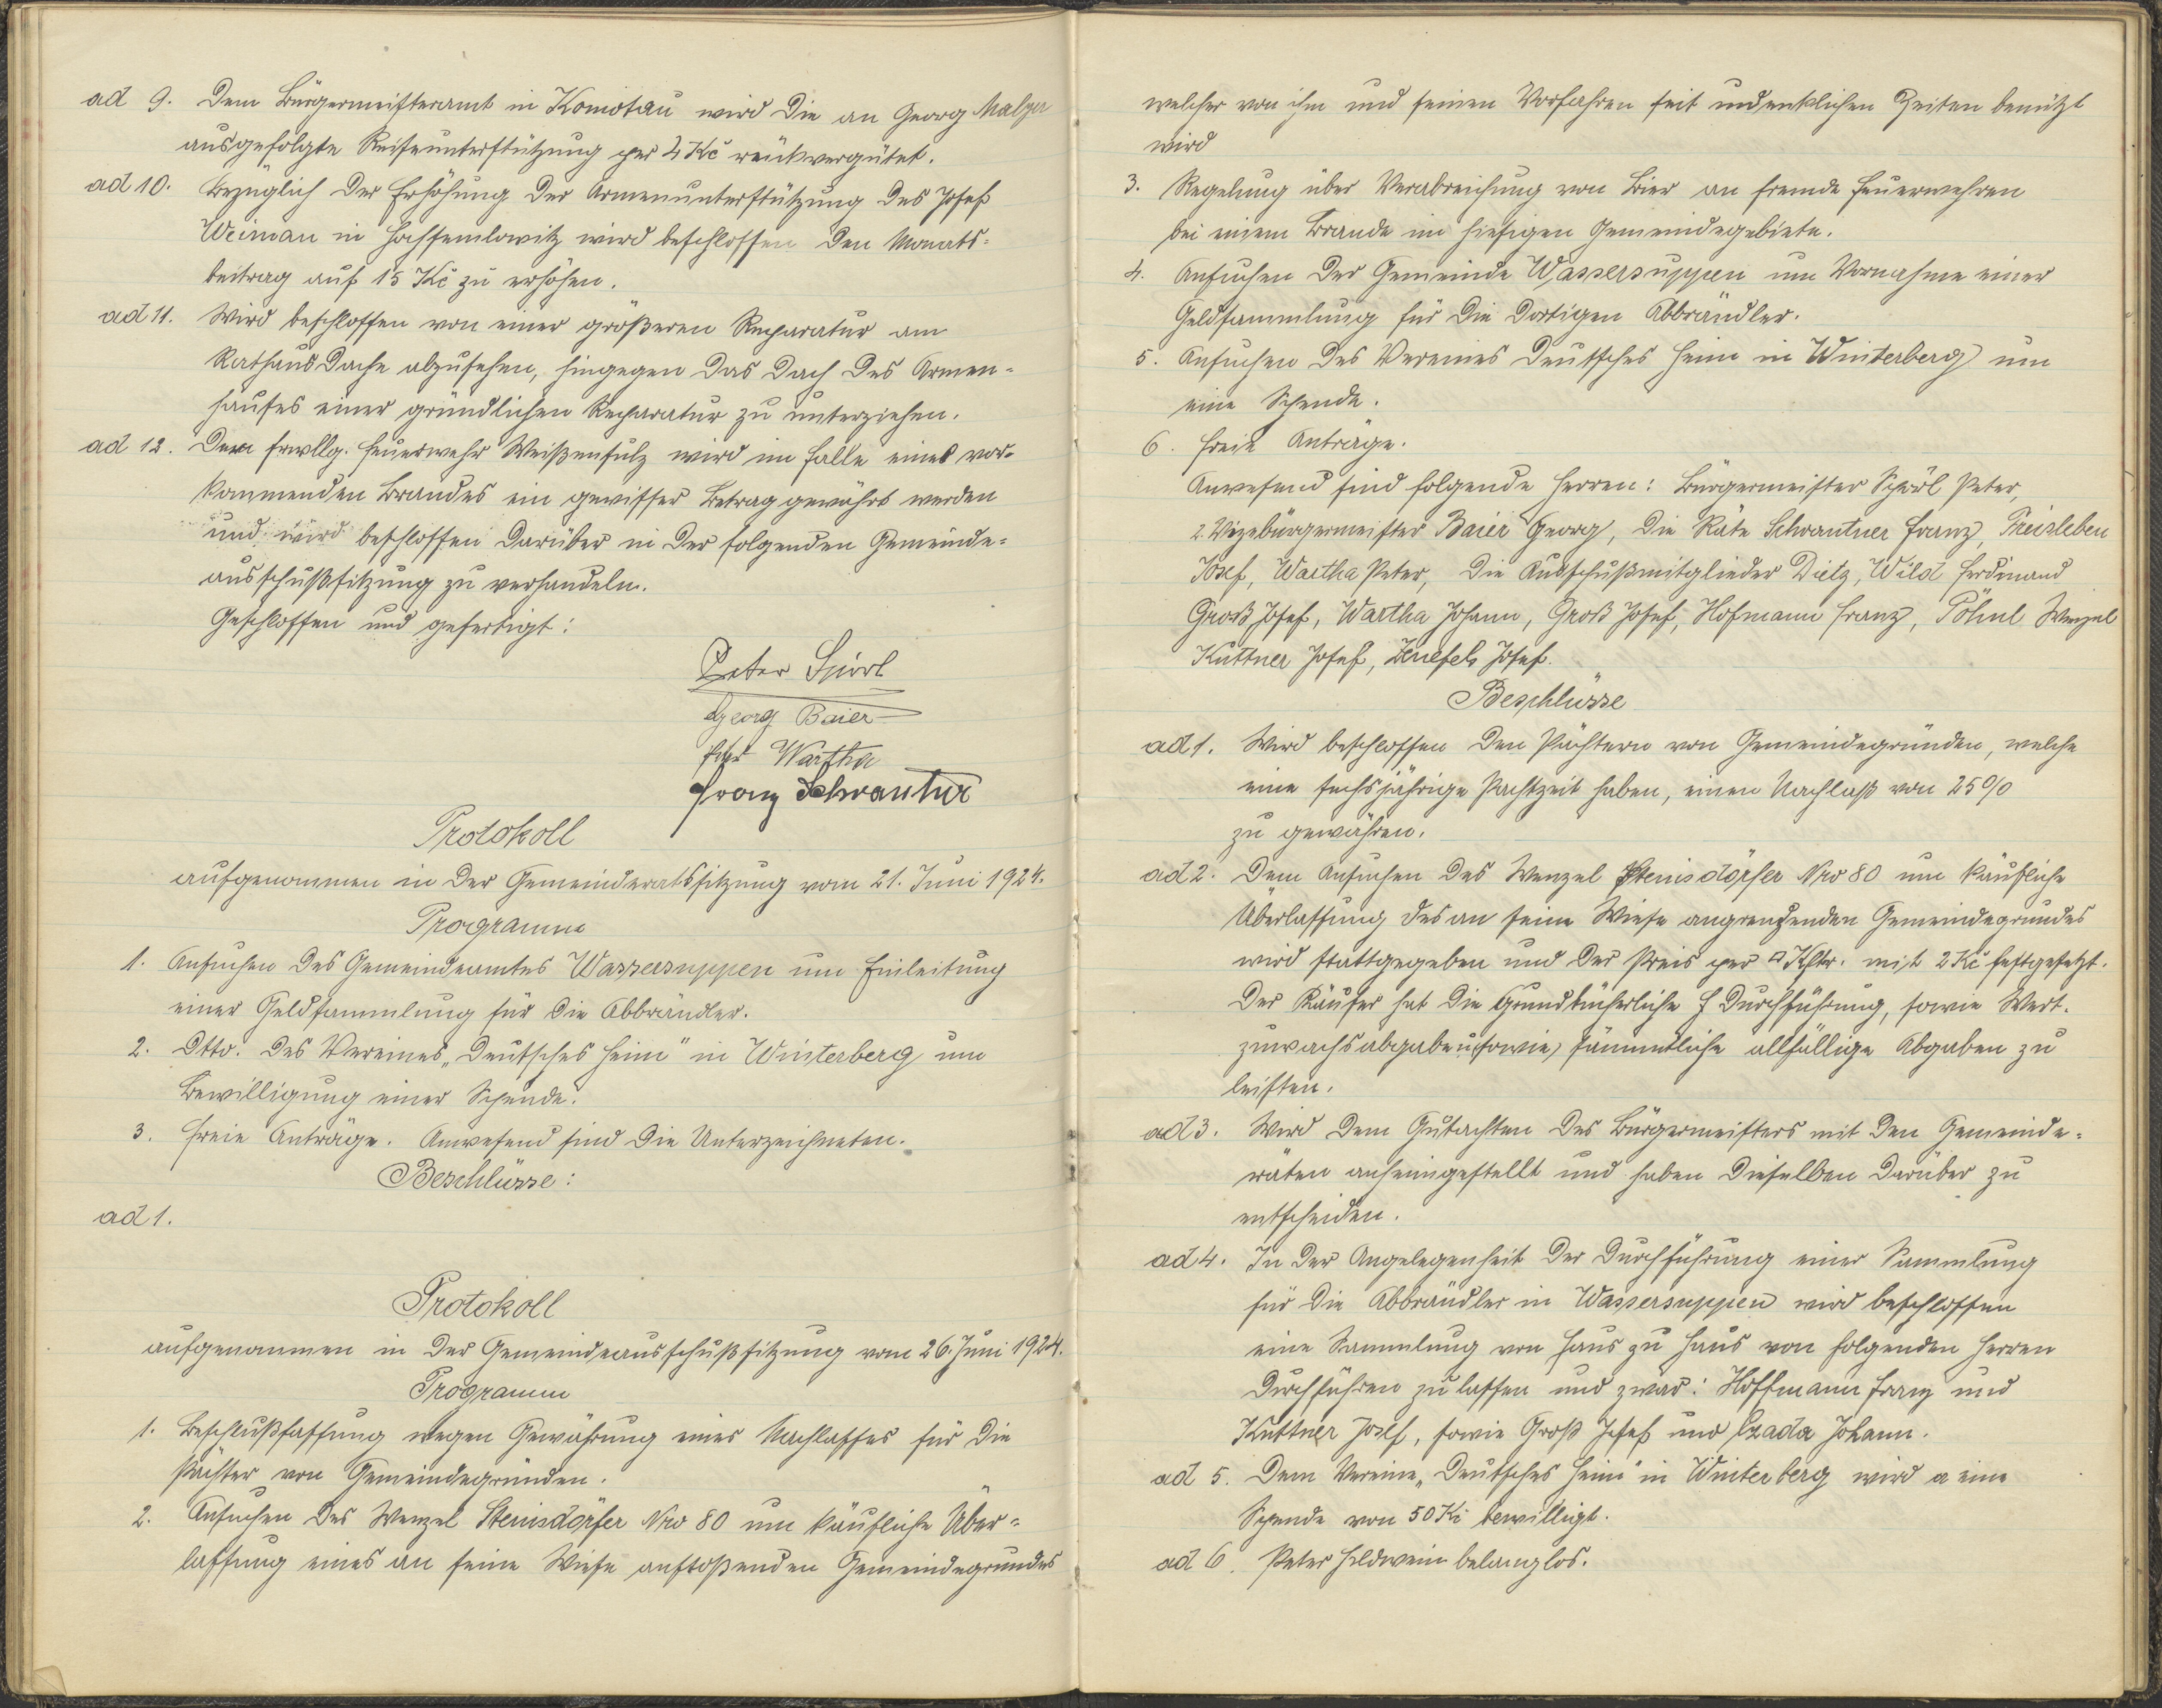 ad 9. Dem Bürgermeisteramt in Komotau wird die an Georg Malzer
ausgefolgte Reiseunterstützung per 4 Kč rückvergütet.
ad 10. Bezüglich der Erhöhung der Armenunterstützung des Josef
Weirman in Hossemlowitz wird beschlossen den Monats=
beitrag auf 15 Kč zu erhöhen.
ad 11. Wird beschlossen von einer größeren Reparatur am
Rathausdache abzusehen, hingegen das Dach des Armen=
hauses einer gründlichen Reparatur zu unterziehen.
ad 12. Der frwllg. Feuerwehr Weißensulz wird im Falle eines vor=
kommenden Brandes ein gewisser Betrag gewährt werden
und wird beschlossen darüber in der folgenden Gemeinde=
ausschußsitzung zu verhandeln.
Geschlossen und gefertigt:
Peter Spörl
Georg Baier
Peter Wartha
Franz Schwantner
Protokoll
aufgenommen in der Gemeinderatssitzung vom 21. Juni 1924.
Programm
1. Ansuchen des Gemeindeamtes Wassersuppen um Einleitung
einer Geldsammlung für die Abbrändler.
2. Dtto. des Vereines „Deutsches Heim" in Winterberg um
Bewilligung einer Spende.
3. Freie Anträge. Anwesend sind die Unterzeichneten.
Beschlüsse:
ad 1.
Protokoll
aufgenommen in der Gemeindeausschußsitzung vom 26. Juni 1924.
Programm
1. Beschlußfassung wegen Gewährung eines Nachlasses für die
Pächter von Gemeindegründen.
2. Ansuchen des Wenzel Steinsdörfer Nro 80 um käufliche Über=
lassung eines an seine Wiese anstoßenden Gemeindegrundes
welcher von ihm und seinen Vorfahren seit undenklichen Zeiten benützt
wird
3. Regelung über Verabreichung von Bier an fremde Feuerwehren
bei einem Brande im hiesigen Gemeindegebiete.
4. Ansuchen der Gemeinde Wassersuppen um Vornahme einer
Geldsammlung für die dortigen Abbrändler.
5. Ansuchen des Vereines Deutsches Heim in Winterberg um
eine Spende.
6. Freie Anträge.
Anwesend sind folgende Herren: Bürgermeister Spörl Peter,
2. Vizebürgermeister Baier Georg, die Räte Schwantner Franz, Preisleben
Josef, Wartha Peter, die Ausschußmitglieder Dietz, Wild Ferdinand
Groß Josef, Wartha Johann, Groß Josef, Hofmann Franz, Pöhnl Wenzel
Kuttner Josef, Josef.
Beschlüsse
ad 1. Wird beschlossen den Pächtern von Gemeindegründen, welche
eine sechsjährige Pachtzeit haben, einen Nachlaß von 25%
zu gewähren.
ad 2. Dem Ansuchen des Wenzel Steinsdörfer Nro 80 um käufliche
Überlassung des an seine Wiese angrenzenden Gemeindegrundes
wird stattgegeben und der Preis per □ Klftr. mit 2 Kč festgesetzt.
Der Käufer hat die grundbücherliche Durchführung, sowie Wert=
zuwachsabgaben sowie sämmtliche allfällige Abgaben zu
leisten.
ad 3. Wird dem Gutachten des Bürgermeisters mit den Gemeinde=
räten anheimgestellt und haben dieselben darüber zu
entscheiden.
ad 4. In der Angelegenheit der Durchführung einer Sammlung
für die Abbrändler in Wassersuppen wird beschlossen
eine Sammlung von Haus zu Haus von folgenden Herren
durchführen zu lassen und zwar: Hoffmann Franz und
Kuttner Josef, sowie Groß Josef und Czada Johann.
ad 5. Dem Vereine „Deutsches Heim" in Winterberg wird a eine
Spende von 50 Kč bewilligt.
ad 6. Peter Heldwein belanglos.